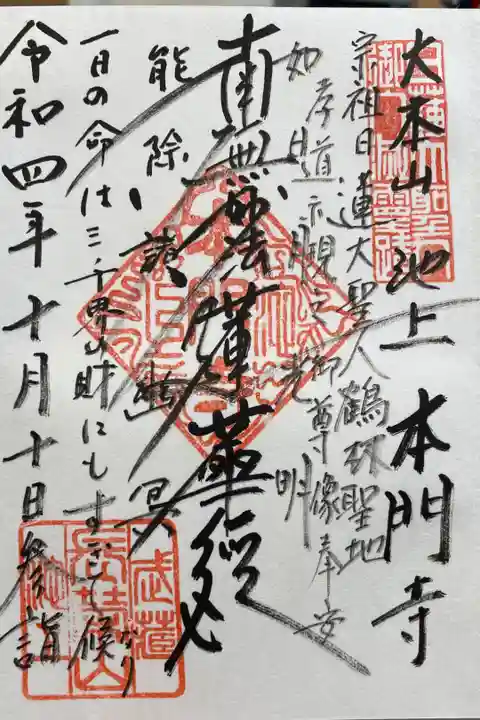 大本山 池上 本門寺
宗祖日蓮大聖人鶴林聖地
孝道示現之御尊像奉安
如日月光明
南無妙法蓮華経
能除諸幽冥
一日の命は三千界の財にもすぎて候なり
令和四年十月十日参詣
日蓮大聖
御霊跡
武蔵
池上